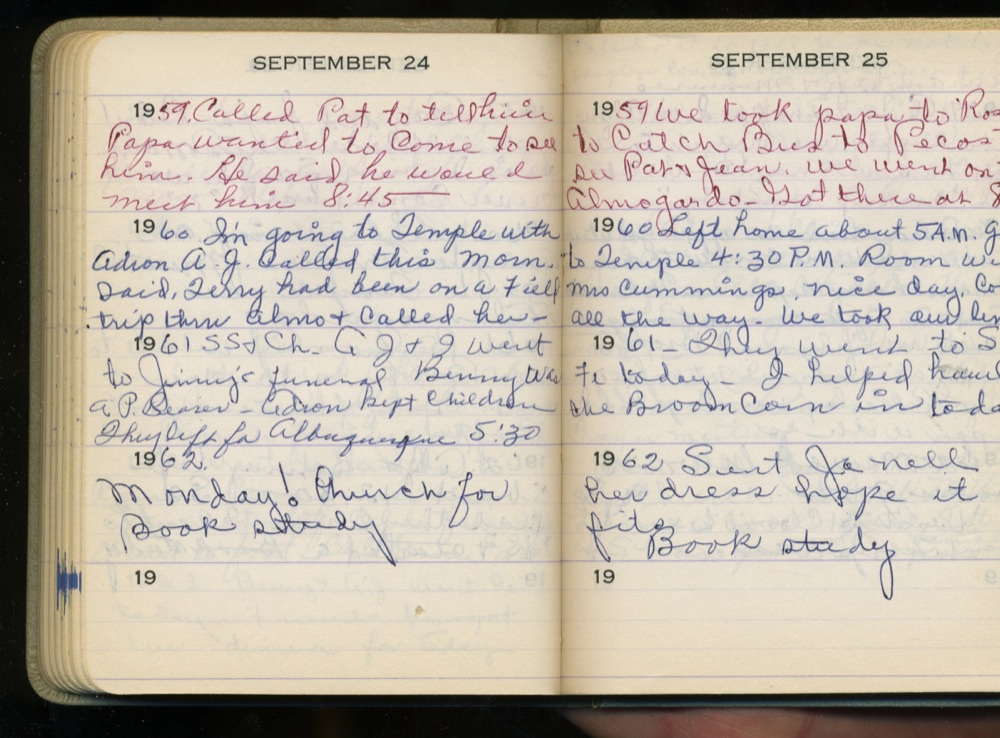 SEPTEMBER 24
1959. Called Pat to tell him
Papa wanted to Come to see
him. He said he would
meet him 8:45
1960 I'm going to Temple with
Adron A. J. Called this morn.
Said, Terry had been on a Field
trip thru Almo & called her -
1961 SS & Ch. A J & J went
to Jimmy's funeral Benny was
a P. Bearer - Adron kept Children
They left for Albuquerque 5:30
1962.
Monday! Church for
Book study
19
SEPTEMBER 25
1959 we took papa to
to Catch Bus to Pecos
see Pat & Jean. we went on
Almogardo - Got there at 8
1960 Left home about 5 A.M.
to Temple 4:30 P.M. Room
Mrs Cummings. nice day.
all the way. We took our
1961 - They went to S
Fe today - I helped haul
the Broom Corn in
1962 Sent Ja nell
her dress hope it
fits
Book study
19